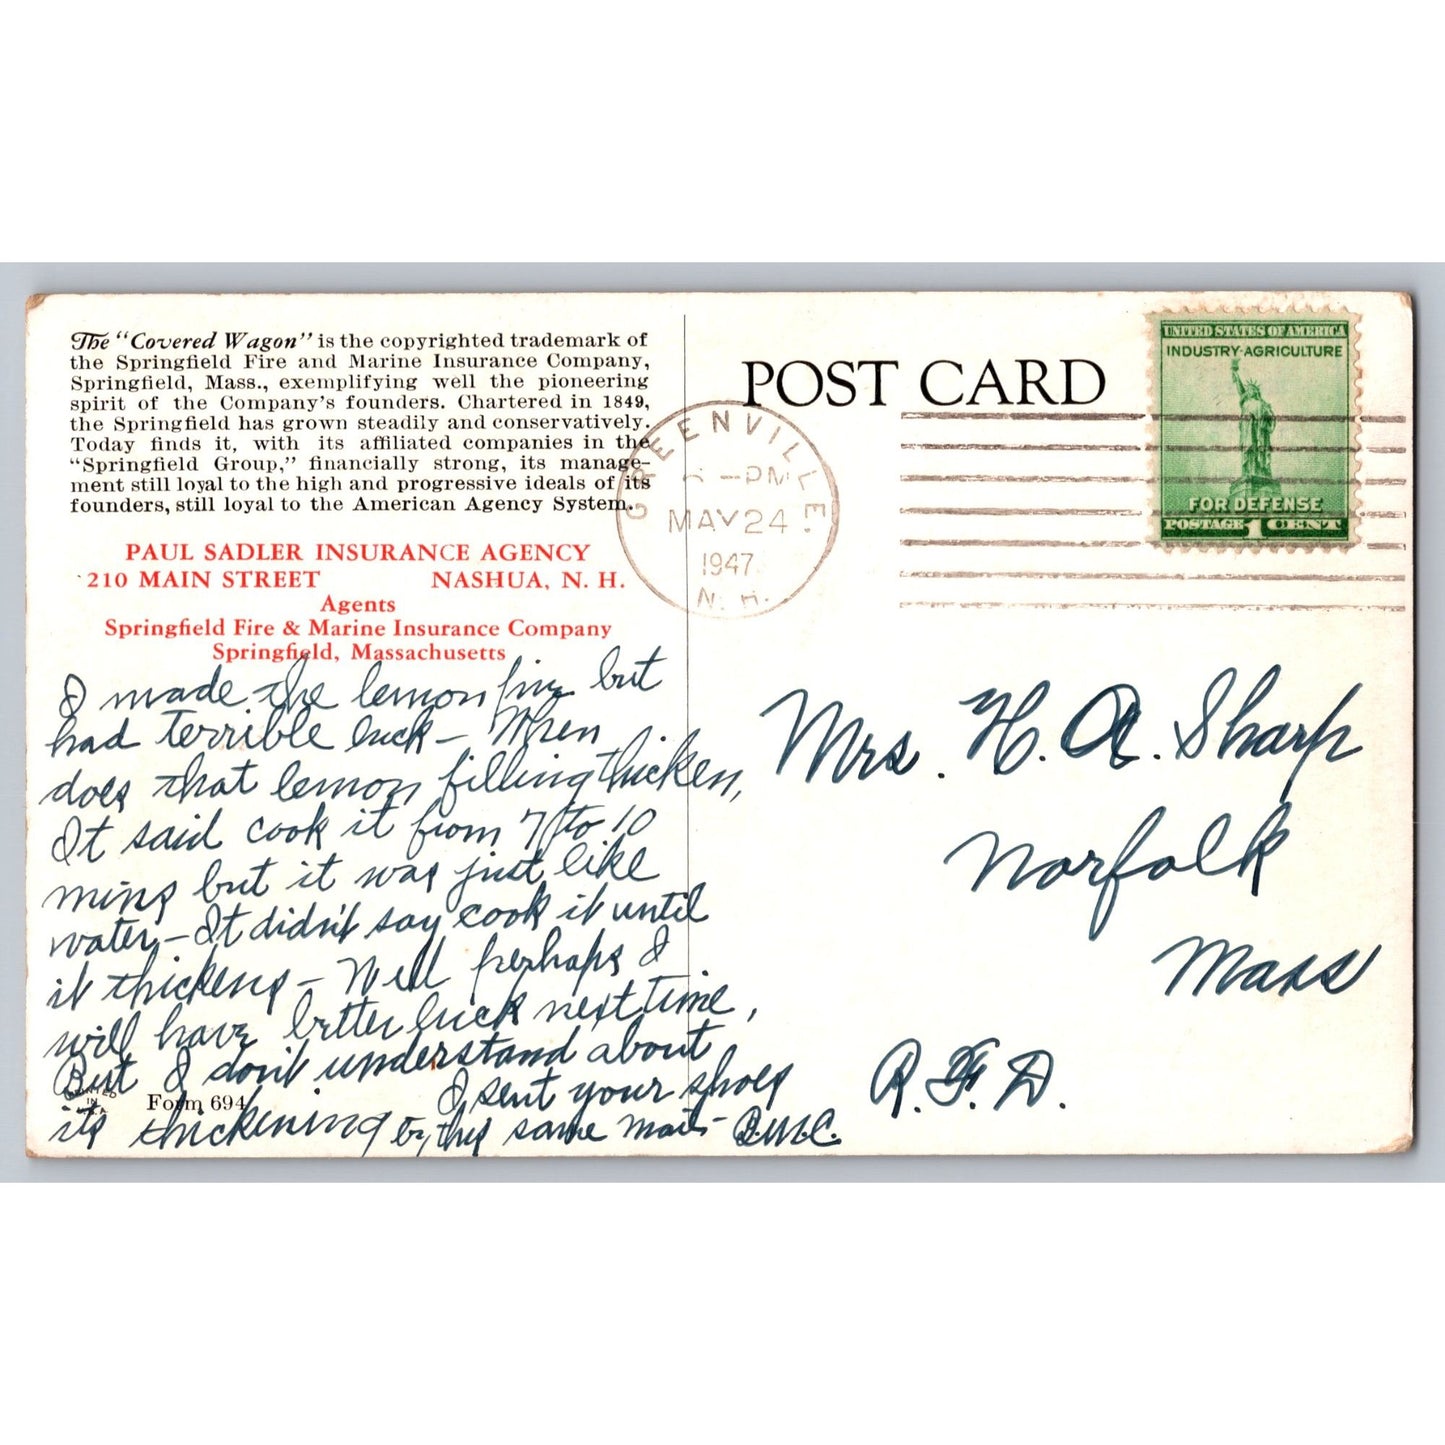 The "Covered Wagon" is the copyrighted trademark of
the Springfield Fire and Marine Insurance Company,
Springfield, Mass., exemplifying well the pioneering
spirit of the Company's founders. Chartered in 1849,
the Springfield has grown steadily and conservatively.
Today finds it, with its affiliated companies in the
"Springfield Group," financially strong, its manage-
ment still loyal to the high and progressive ideals of its
founders, still loyal to the American Agency System.
PAUL SADLER INSURANCE AGENCY
210 MAIN STREET NASHUA, N. H.
Agents
Springfield Fire & Marine Insurance Company
Springfield, Massachusetts
I made the lemon pie but
had terrible luck – When
does that lemon filling thicken,
It said cook it from 7 to 10
mins but it was just like
water – It didn't say cook it until
it thickens – Well perhaps I
will have better luck next time,
But I don't understand about
its thickening
I sent your shoes
by this same mail – B.M.C.
PRINTED
IN
U.S.A
Form 694
POST CARD
GREENVILLE.
PM
MAY 24
1947
N. H.
UNITED STATES OF AMERICA
INDUSTRY·AGRICULTURE
FOR DEFENSE
POSTAGE 1 CENT
Mrs. H. A. Sharp
Norfolk
Mass
R. F. D.